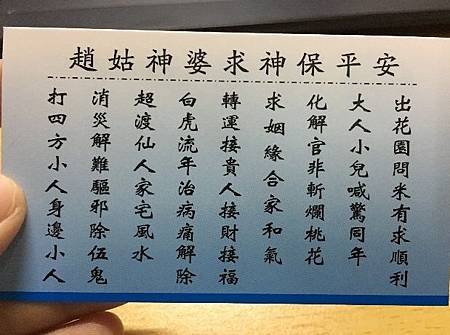 趙姑神婆求神保平安
出花園問米有求順利
大人小兒喊驚同年
化解官非斬爛桃花
求姻緣合家和氣
轉運接貴人接財接福
白虎流年治病痛解除
超渡仙人家宅風水
消災解難驅邪除伍鬼
打四方小人身邊小人